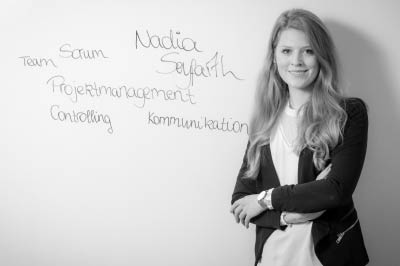 Nadia
Seyfarth
Team Scrum
Projektmanagement
Controlling Kommunikation